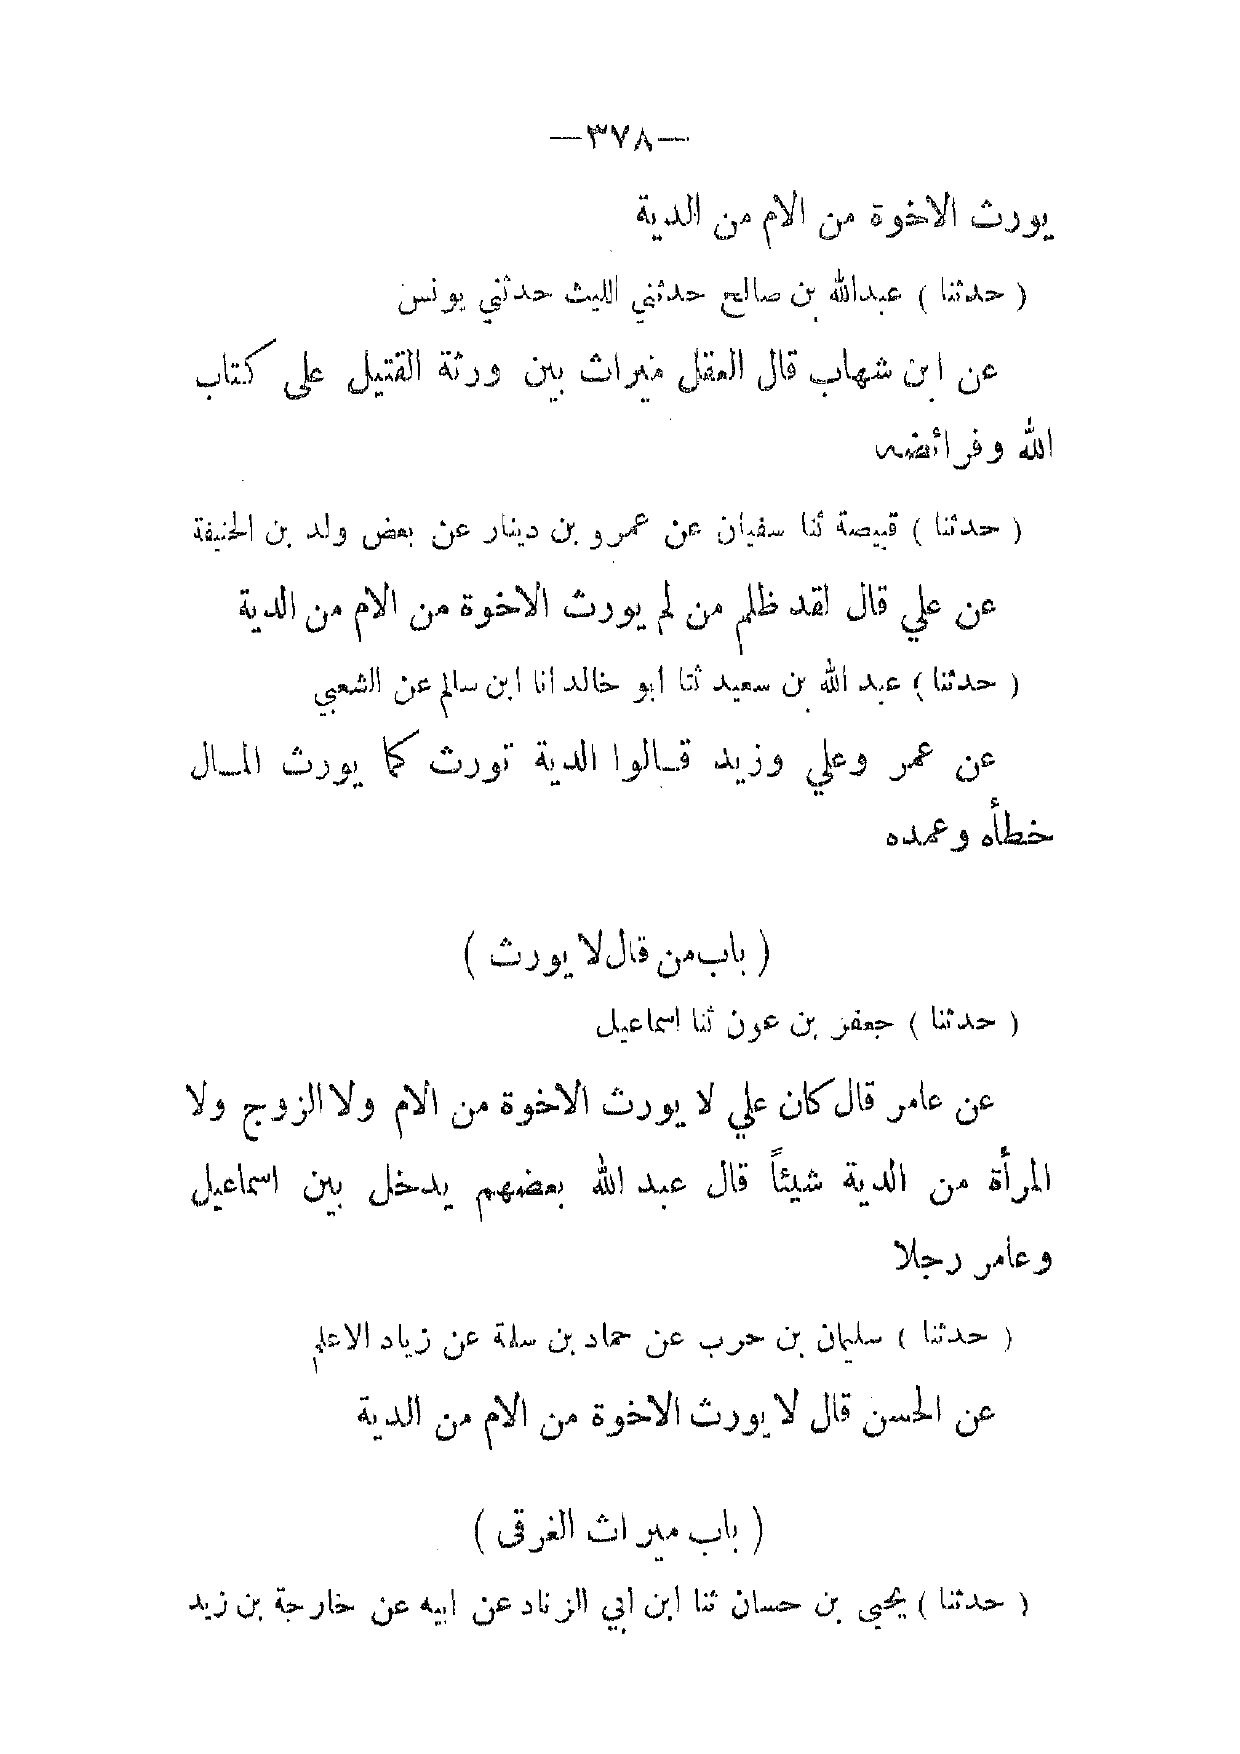 —٣٧٨—
يورث الاخوة من الام من الدية
( حدثنا ) عبدالله بن صالح حدثني الليث حدثني يونس
عن ابن شهاب قال العقل ميراث بين ورثة القتيل على كتاب
الله وفرائضه
( حدثنا ) قبيصة ثنا سفيان عن عمرو بن دينار عن بعض ولد بن الحنيفة
عن علي قال لقد ظلم من لم يورث الاخوة من الام من الدية
( حدثنا ) عبد الله بن سعيد ثنا ابو خالد انا ابن سالم عن الشعبي
عن عمر وعلي وزيد قالوا الدية تورث كما يورث المال
خطأه وعمده
( باب من قال لا يورث )
( حدثنا ) جعفر بن عون ثنا اسماعيل
عن عامر قال كان علي لا يورث الاخوة من الام ولا الزوج ولا
المرأة من الدية شيئاً قال عبد الله بعضهم يدخل بين اسماعيل
وعامر رجلا
( حدثنا ) سليمان بن حرب عن حماد بن سلمة عن زياد الاعلم
عن الحسن قال لا يورث الاخوة من الام من الدية
( باب ميراث الغرقى )
( حدثنا ) يحيى بن حسان ثنا ابن ابي الزناد عن ابيه عن خارجة بن زيد